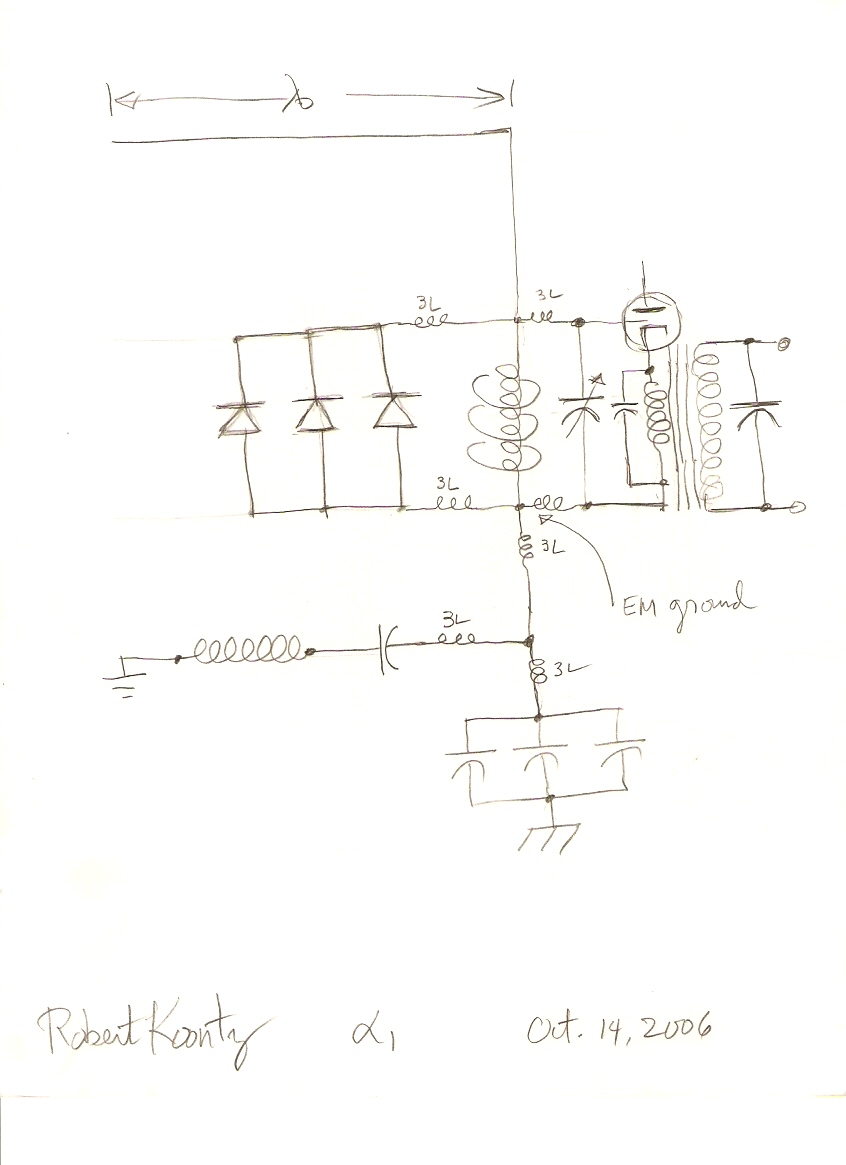 λ₀
3L
3L
3L
3L
EM ground
3L
3L
Robert Koontz α₁ Oct. 14, 2006